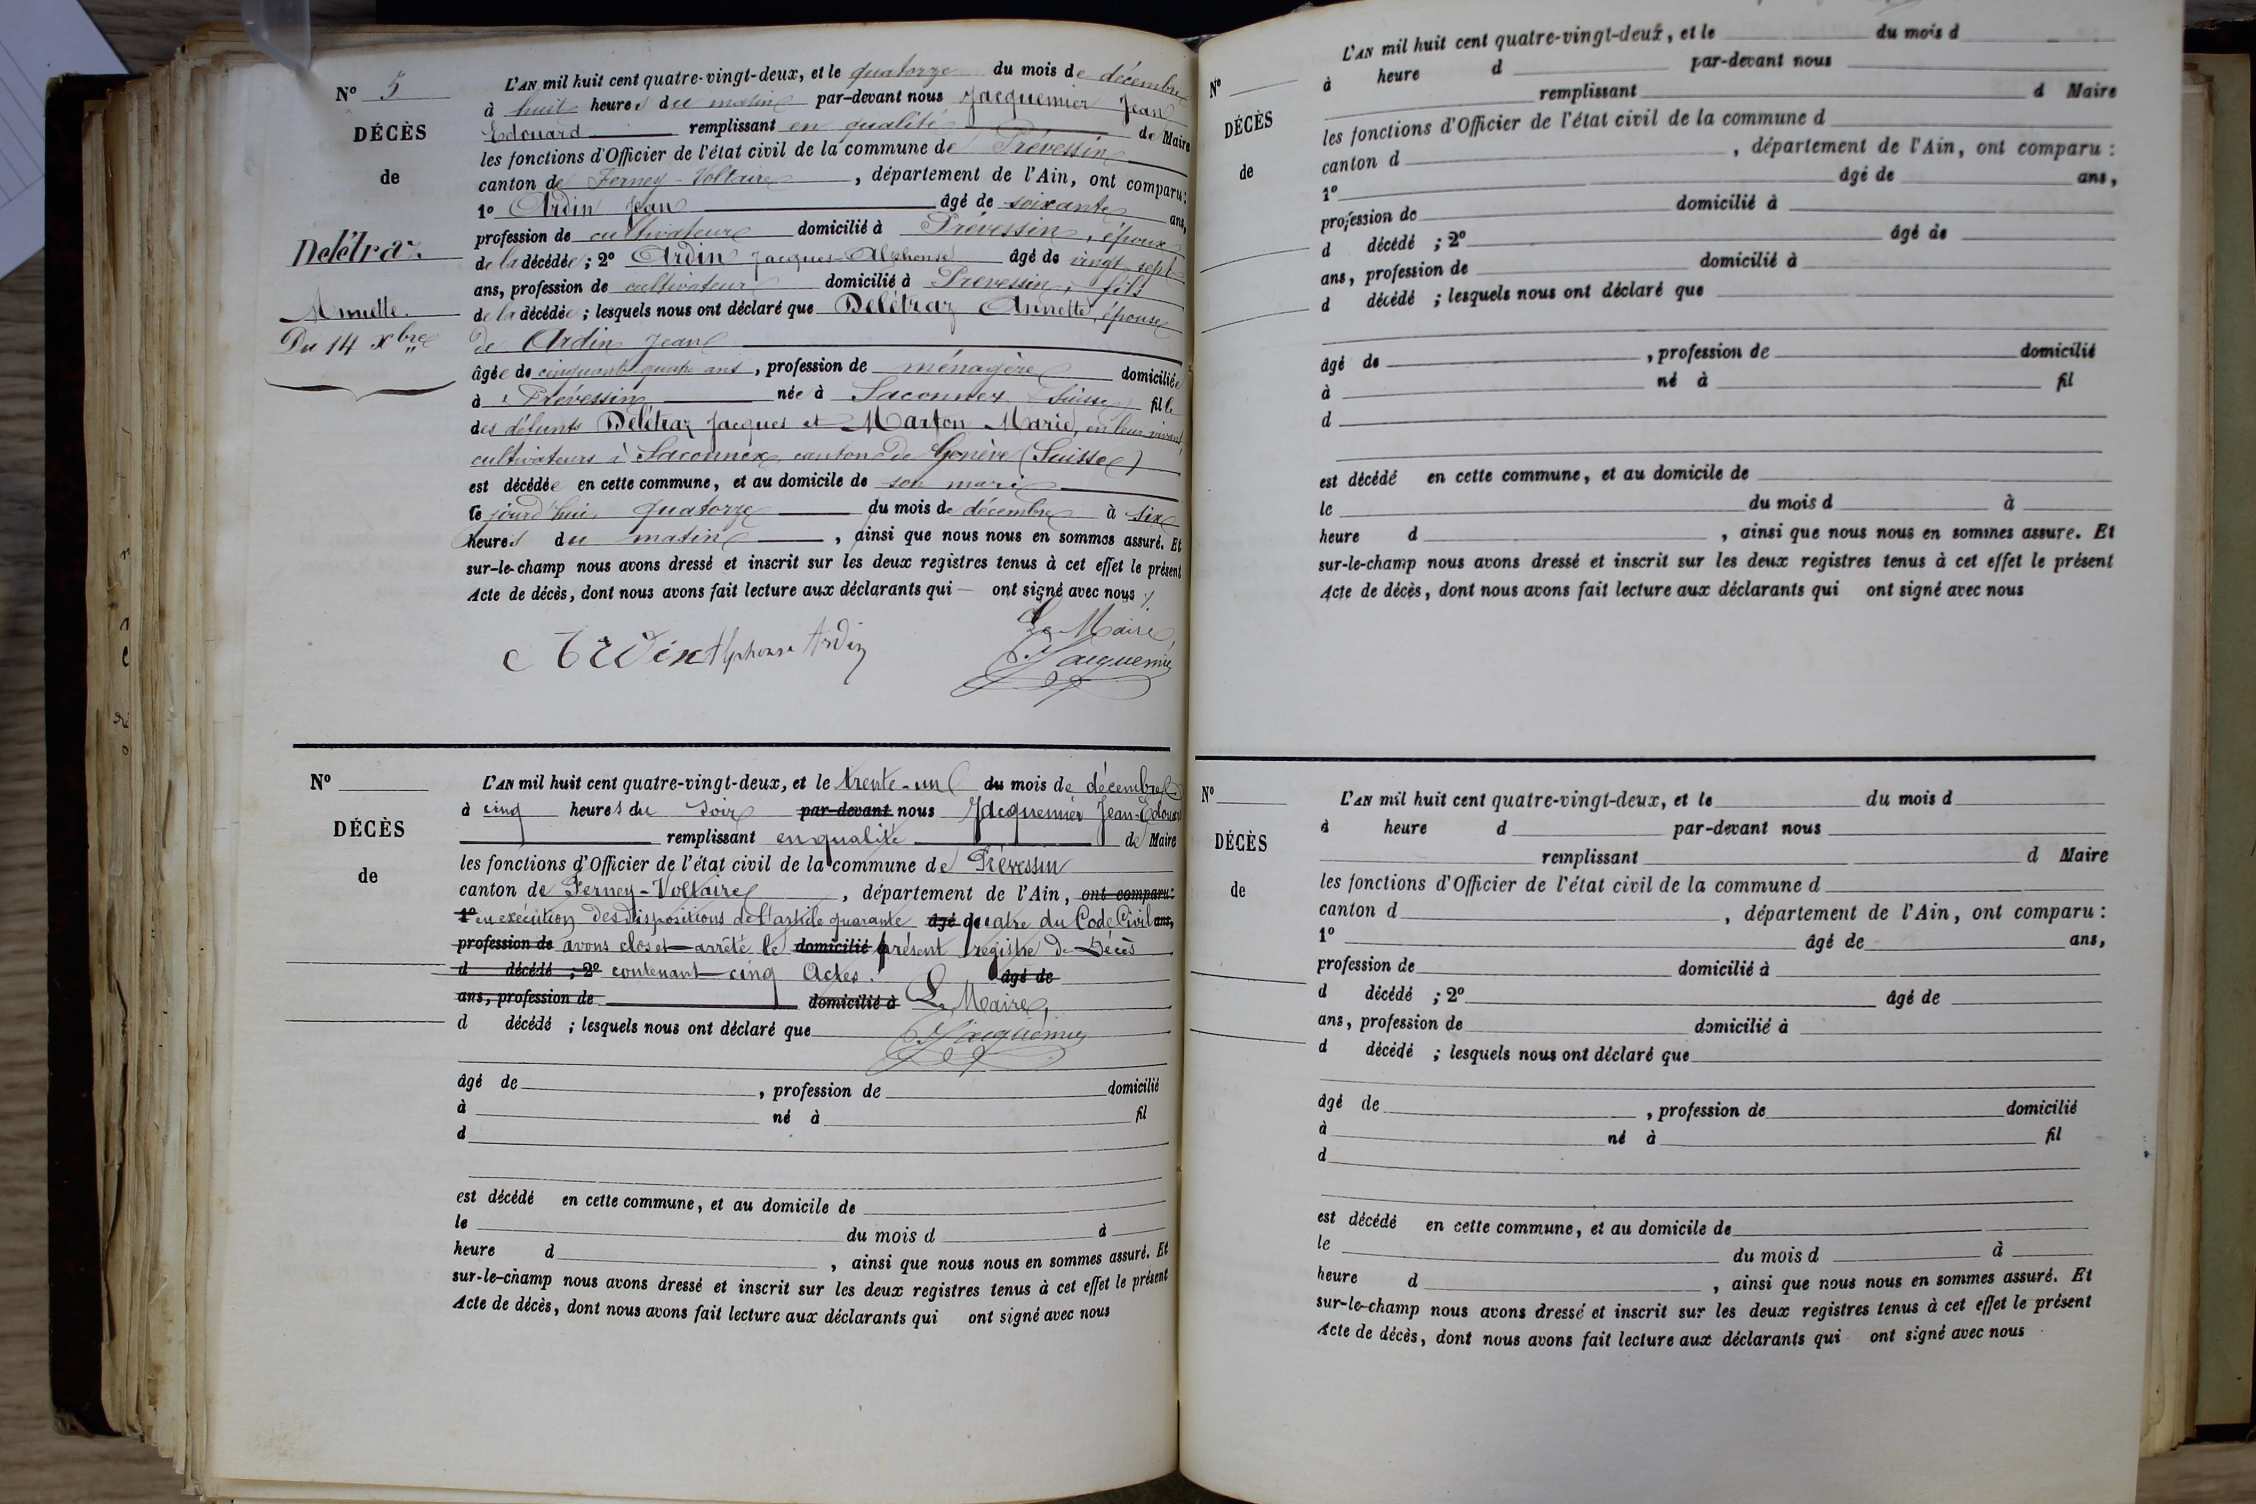 N° 5
DÉCÈS
de
Delétraz
Annette.
Du 14 Xbre
L'AN mil huit cent quatre-vingt-deux, et le quatorze du mois de décembre
à huit heures du matin par-devant nous Jacquemier Jean
Edouard remplissant en qualité de Maire
les fonctions d'Officier de l'état civil de la commune de Prévessin
canton de Ferney-Voltaire, département de l'Ain, ont comparu :
1° Ardin Jean âgé de soixante ans,
profession de cultivateur domicilié à Prévessin, époux
de la décédée ; 2° Ardin Jacques-Alphonse âgé de vingt-sept
ans, profession de cultivateur domicilié à Prévessin, fils
de la décédée ; lesquels nous ont déclaré que Delétraz Annette, épouse
de Ardin Jean
âgée de cinquante-quatre ans, profession de ménagère domiciliée
à Prévessin née à Saconnex Suisse fille
des défunts Delétraz Jacques et Marion Marie, en leur vivant
cultivateurs à Saconnex, canton de Genève (Suisse)
est décédée en cette commune, et au domicile de son mari
le jourd'hui quatorze du mois de décembre à six
heures du matin, ainsi que nous nous en sommes assuré. Et
sur-le-champ nous avons dressé et inscrit sur les deux registres tenus à cet effet le présent
Acte de décès, dont nous avons fait lecture aux déclarants qui ont signé avec nous
Le Maire,
Ardin Alphonse Ardin Jacquemier
N°
DÉCÈS
de
L'AN mil huit cent quatre-vingt-deux, et le trente-un du mois de décembre
à cinq heures du soir par-devant nous Jacquemier Jean-Edouard
remplissant en qualité de Maire
les fonctions d'Officier de l'état civil de la commune de Prévessin
canton de Ferney-Voltaire, département de l'Ain, ont comparu :
1° en exécution des dispositions de l'article quarante âgé quatre du Code Civil ans,
profession de avons clos et arrêté le domicilié présent registre de Décès
d décédé ; 2° contenant cinq Actes. âgé de
ans, profession de domicilié à Le Maire,
d décédé ; lesquels nous ont déclaré que Jacquemier
âgé de , profession de domicilié
à né à fil
d
est décédé en cette commune, et au domicile de
le du mois d à
heure d , ainsi que nous nous en sommes assuré. Et
sur-le-champ nous avons dressé et inscrit sur les deux registres tenus à cet effet le présent
Acte de décès, dont nous avons fait lecture aux déclarants qui ont signé avec nous
N°
DÉCÈS
de
L'AN mil huit cent quatre-vingt-deux, et le du mois d
à heure d par-devant nous
remplissant d Maire
les fonctions d'Officier de l'état civil de la commune d
canton d , département de l'Ain, ont comparu :
1° âgé de ans,
profession de domicilié à
d décédé ; 2° âgé de
ans, profession de domicilié à
d décédé ; lesquels nous ont déclaré que
âgé de , profession de domicilié
à né à fil
d
est décédé en cette commune, et au domicile de
le du mois d à
heure d , ainsi que nous nous en sommes assuré. Et
sur-le-champ nous avons dressé et inscrit sur les deux registres tenus à cet effet le présent
Acte de décès, dont nous avons fait lecture aux déclarants qui ont signé avec nous
N°
DÉCÈS
de
L'AN mil huit cent quatre-vingt-deux, et le du mois d
à heure d par-devant nous
remplissant d Maire
les fonctions d'Officier de l'état civil de la commune d
canton d , département de l'Ain, ont comparu :
1° âgé de ans,
profession de domicilié à
d décédé ; 2° âgé de
ans, profession de domicilié à
d décédé ; lesquels nous ont déclaré que
âgé de , profession de domicilié
à né à fil
d
est décédé en cette commune, et au domicile de
le du mois d à
heure d , ainsi que nous nous en sommes assuré. Et
sur-le-champ nous avons dressé et inscrit sur les deux registres tenus à cet effet le présent
Acte de décès, dont nous avons fait lecture aux déclarants qui ont signé avec nous